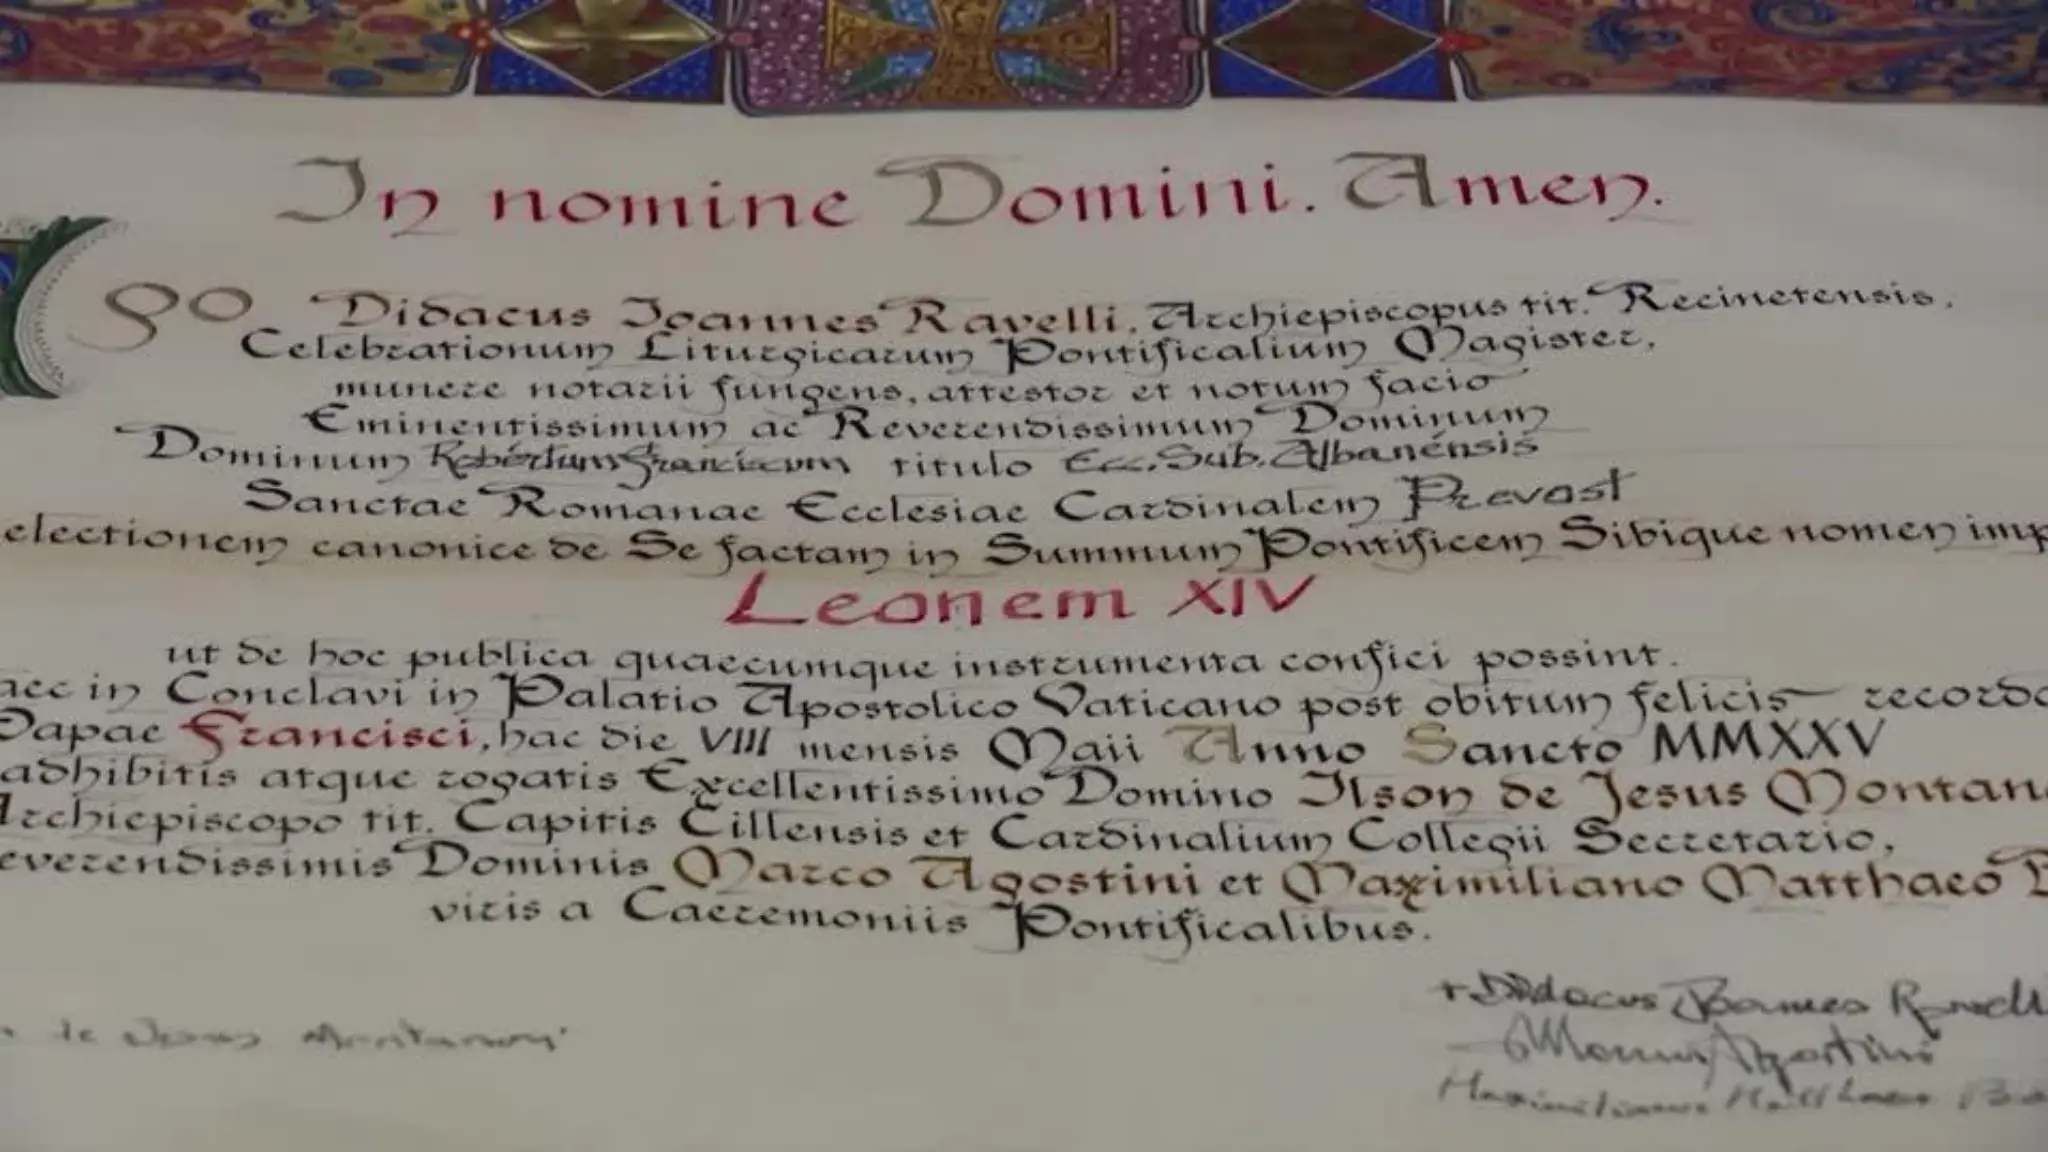 In nomine Domini. Amen.
Ego Didacus Ioannes Ravelli, Archiepiscopus tit. Recinetensis,
Celebrationum Liturgicarum Pontificalium Magister,
munere notarii fungens, attestor et notum facio
Eminentissimum ac Reverendissimum Dominum
Dominum Robertum Franciscum titulo Ecc. Sub. Albanénsis
Sanctae Romanae Ecclesiae Cardinalem Prevost
electionem canonice de Se factam in Summum Pontificem Sibique nomen imp
Leonem XIV
ut de hoc publica quaecumque instrumenta confici possint.
aec in Conclavi in Palatio Apostolico Vaticano post obitum felicis recorda
Papae Francisci, hac die VIII mensis Maii Anno Sancto MMXXV
adhibitis atque rogatis Excellentissimo Domino Ilson de Jesus Montana
Archiepiscopo tit. Capitis Cillensis et Cardinalium Collegii Secretario,
everendissimis Dominis Marco Agostini et Maximiliano Matthaeo B
viris a Caeremoniis Pontificalibus.
+ Didacus Joannes Ravelli
de Jesus Montanari
Marcus Agostini
Maximilianus Matthaeus Bo